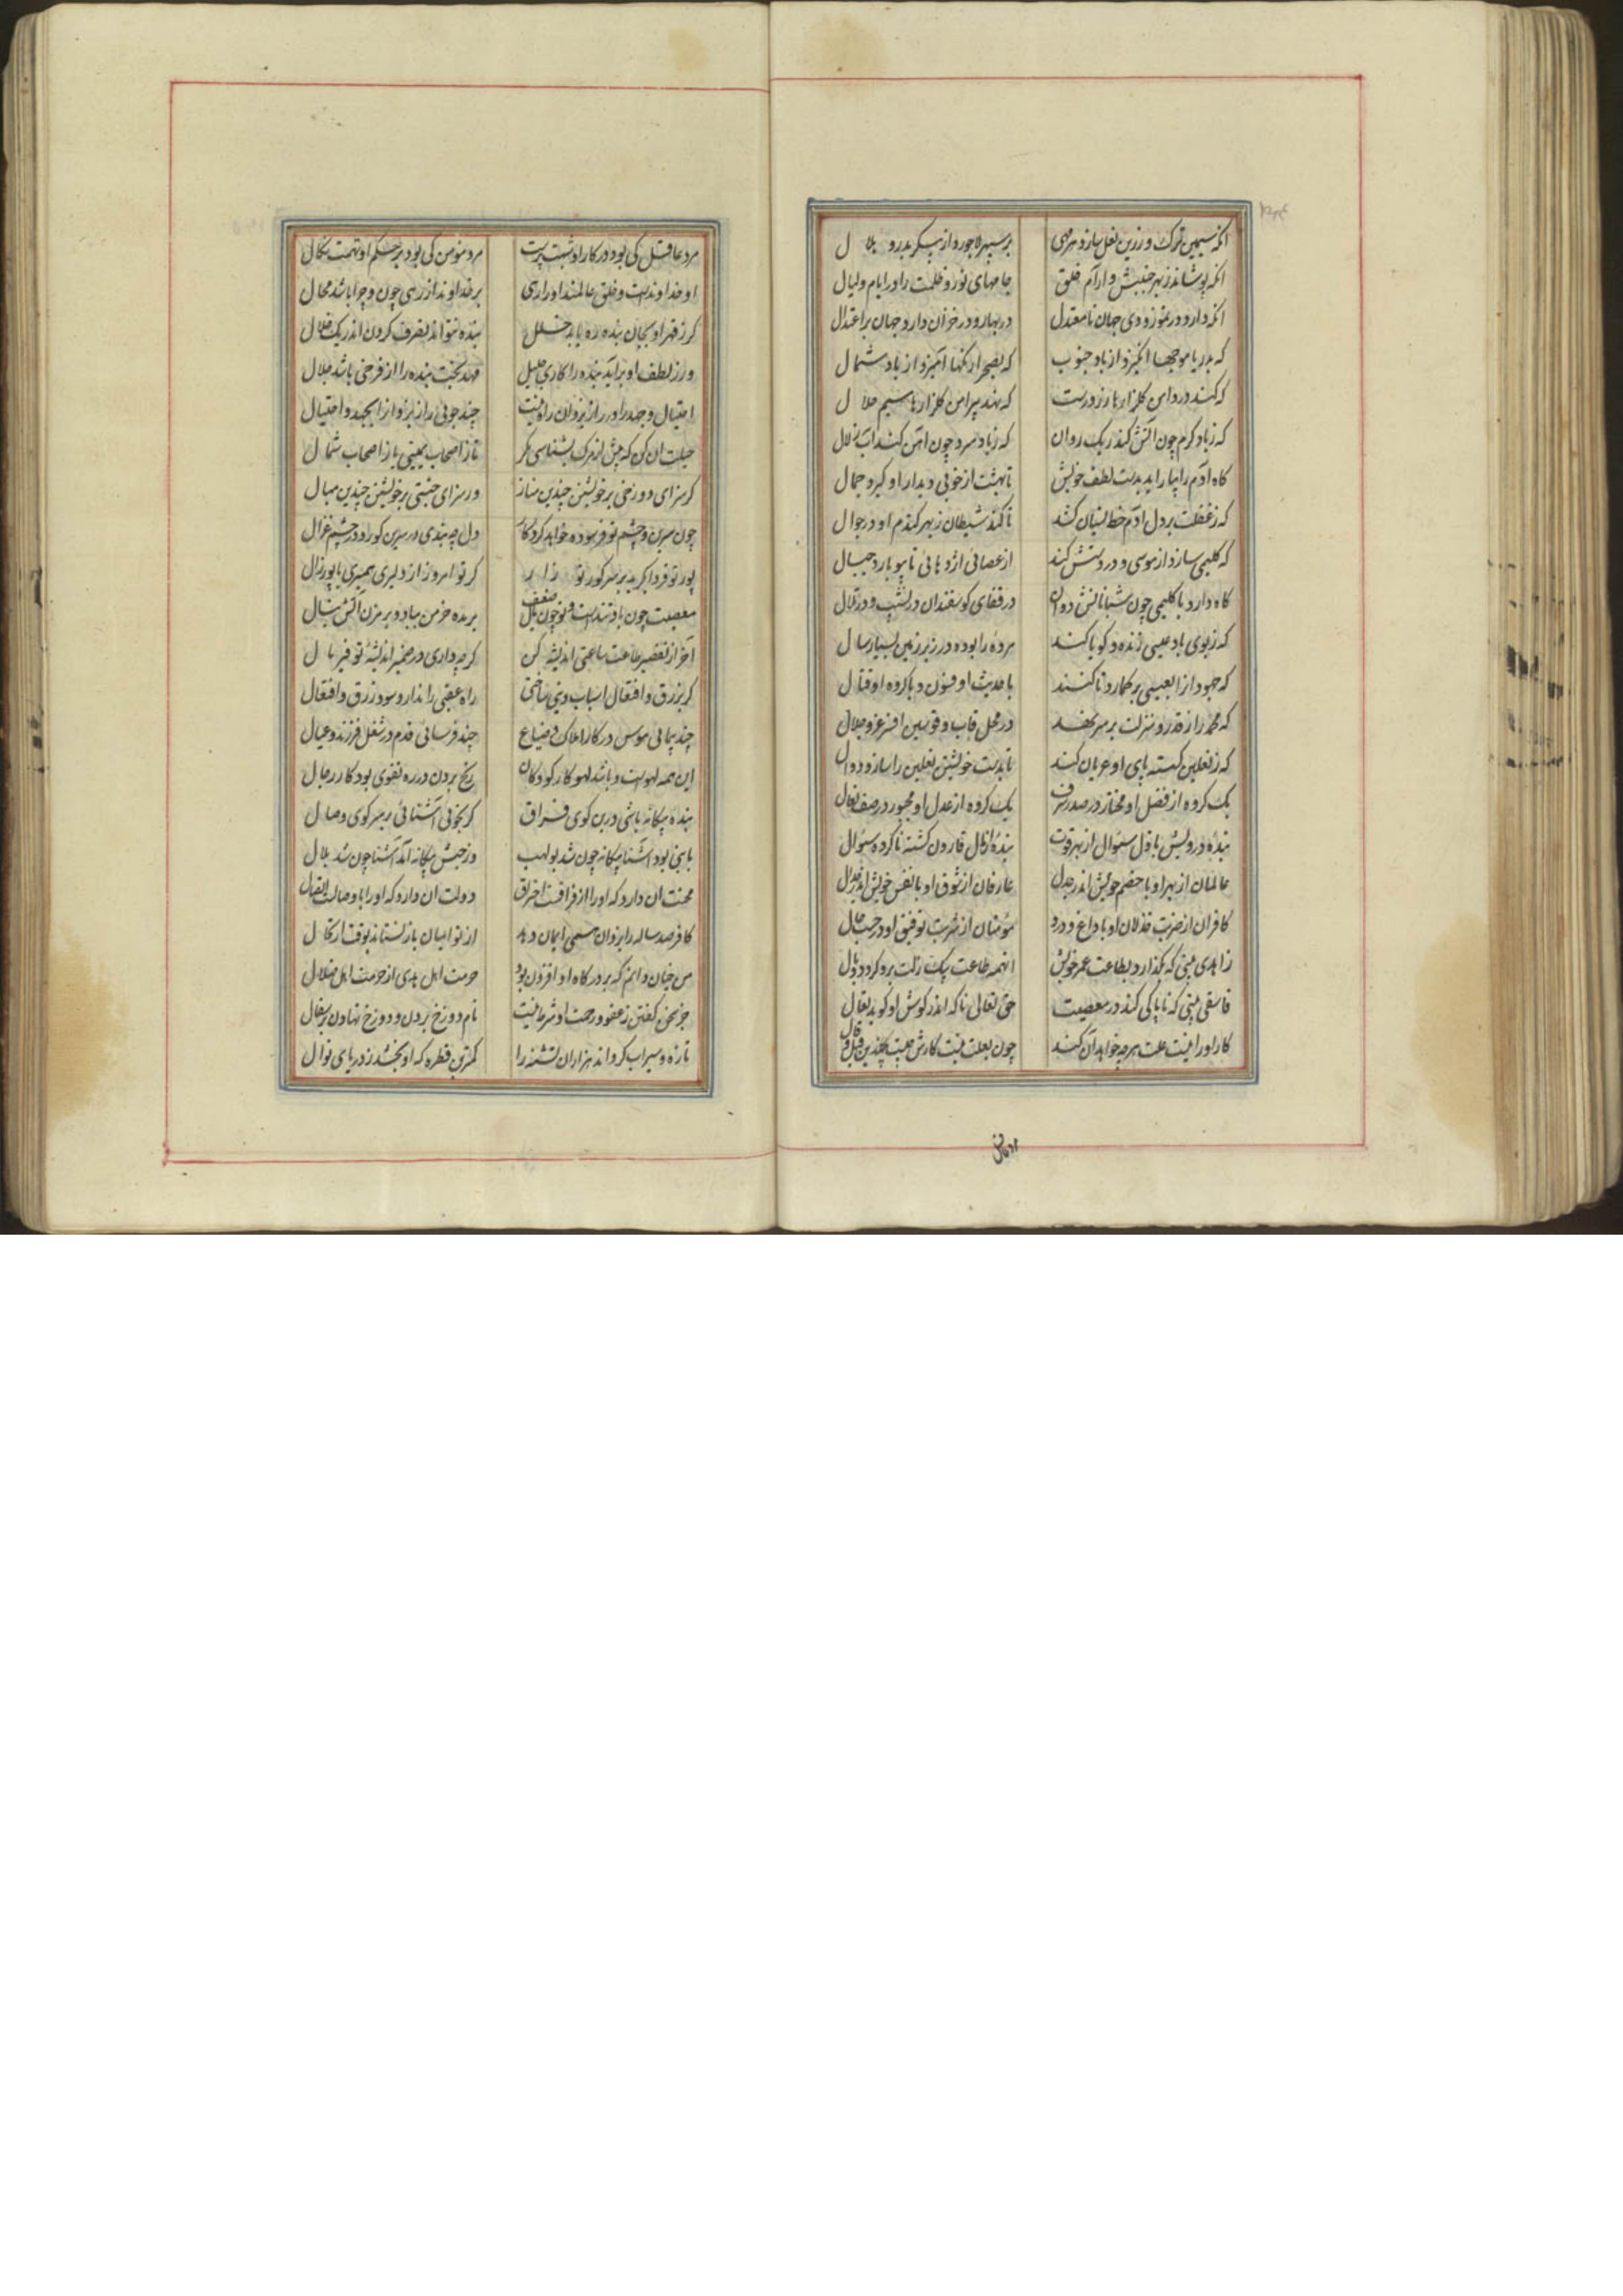 آنکه سیمین ترک و زرین نعل سازد هر مهی بر سپهر لاجورد از پیکر بدر و هلال
آنکه پوشاند ز بهر جنبش و آرام خلق جامهای نور و ظلمت را در ایام و لیال
آنکه دارد در تموز و دی جهان نامعتدل در بهار و در خزان دارد جهان بر اعتدال
که بدریا موجها انگیزد از باد جنوب که بصحرا رنگها آمیزد از باد شمال
که کند در دامن گلزارها زر درست که نهد پیرامن گلزارها سیم حلال
که ز باد گرم چون آتش کند ریگ روان که ز باد سرد چون آهن کند آب زلال
گاه آدم را بیاراید بدست لطف خویش تا بهشت از خوبی دیدار او گیرد جمال
که ز غفلت بر دل آدم خط نسیان کشد تا کند شیطان ز بهر گندم او در جوال
که کلیمی سازد از موسی و در دستش کند از عصائی اژدهائی تا بیوبارد جبال
گاه دارد با کلیمی چون شبانانش دوان در قفای گوسفندان در نشیب و در تلال
که ز بوی باد عیسی زنده و گویا کند مرده را بوده در زیر زمین بسیار سال
که جهود از ابعیسی بر گمارد تا کنند با حدیث او فسون و با گروه او قتال
که محمد را ز قدر و منزلت بر سر نهد در محل قاب و قوسین افسر عز و جلال
که ز نعلین گسسته پای او عریان کند تا بدست خویشتن نعلین را سازد دوال
یک گروه از فضل او مختار در صدر شرف یک گروه از عدل او مجبور در صف نعال
بنده درویش با ذل سئوال از بهر قوت بنده از مال قارون گشته ناکرده سئوال
عالمان از بهر او با خصم خویش اندر جدل عارفان از شوق او با نفس خویش اندر جدال
کافران از ضربت خذلان او با داغ و درد مؤمنان از شربت توفیق او در حسب حال
زاهدی بینی که بگذارد بطاعت عمر خویش آنهمه طاعت بیک زلت برو گردد وبال
فاسقی بینی که ناپاکی کند در معصیت حق تعالی ناگه اندر گوش او گوید تعال
کار او را نیست علت هر چه خواهد آن کند چون بعلت نیست کارش چیست چندین قیل و قال
مرد عاقل کی بود در کار او شبهت پرست مرد مؤمن کی بود بر حکم او تهمت سگال
او خداوندست و خلق عالمند او را رهی بر خداوند از رهی چون و چرا باشد محال
گر ز قهر او بجان بنده ره یابد خلل بنده نتواند تصرف کردن اندر یک خلال
ور ز لطف او برآید بنده را کاری جلیل مهد بخت بنده را از فرخی باشد جلال
احتیال و جهد را در راز یزدان راه نیست چند جوئی راز یزدان از بجهد و احتیال
حیلت آن کن که پیش از مرگ بشناسی مگر تا ز اصحاب یمینی یا ز اصحاب شمال
گر سزای دوزخی بر خویشتن چندین مناز ور سزای جنتی بر خویشتن چندین مبال
چون سرین و چشم تو فرسوده خواهد کرد خاک دل چه بندی در سرین گور و در چشم غزال
پور تو فردا بگرید بر سر گور تو زار گر تو امروز از دلیری همبری با پور زال
معصیت چون باد تندست و تو چون بیل ضعیف بر مده خرمن بباد و بر مزن آتش بنال
آخر از تقصیر طاعت ساعتی اندیشه کن گر چه داری در ضمیر اندیشه توفیر مال
گر بزرق و افتعال اسباب دینی ساختی راه عقبی را ندارد سود زرق و افتعال
چند پیمائی هوس در کار املاک و ضیاع چند فرسائی قدم در شغل فرزند و عیال
این همه لهوست و باشد لهو کار کودکان رنج بردن در ره تقوی بود کار رجال
بنده بیگانه باشی در بن کوی فراق گر نجوئی آشنائی بر سر کوی وصال
با نبی بود آشنا بیگانه چون شد بولهب وز حبش بیگانه آمد آشنا چون شد بلال
محنت آن دارد که او را از فراقت احتراق دولت آن دارد که او را با وصالت اتصال
کافر صد ساله را یزدان همی ایمان دهد از تو ایمان باز نستاند بوقت ارتحال
من چنان دانم که بر درگاه او افزون بود حرمت اهل هدی از حرمت اهل ضلال
جز سخن گفتن ز عفو و رحمت او شرط نیست نام دوزخ بردن و دوزخ نهادن بر سفال
تازه و سیراب گرداند هزاران تشنه را کمترین قطره که او بخشد ز دریای نوال